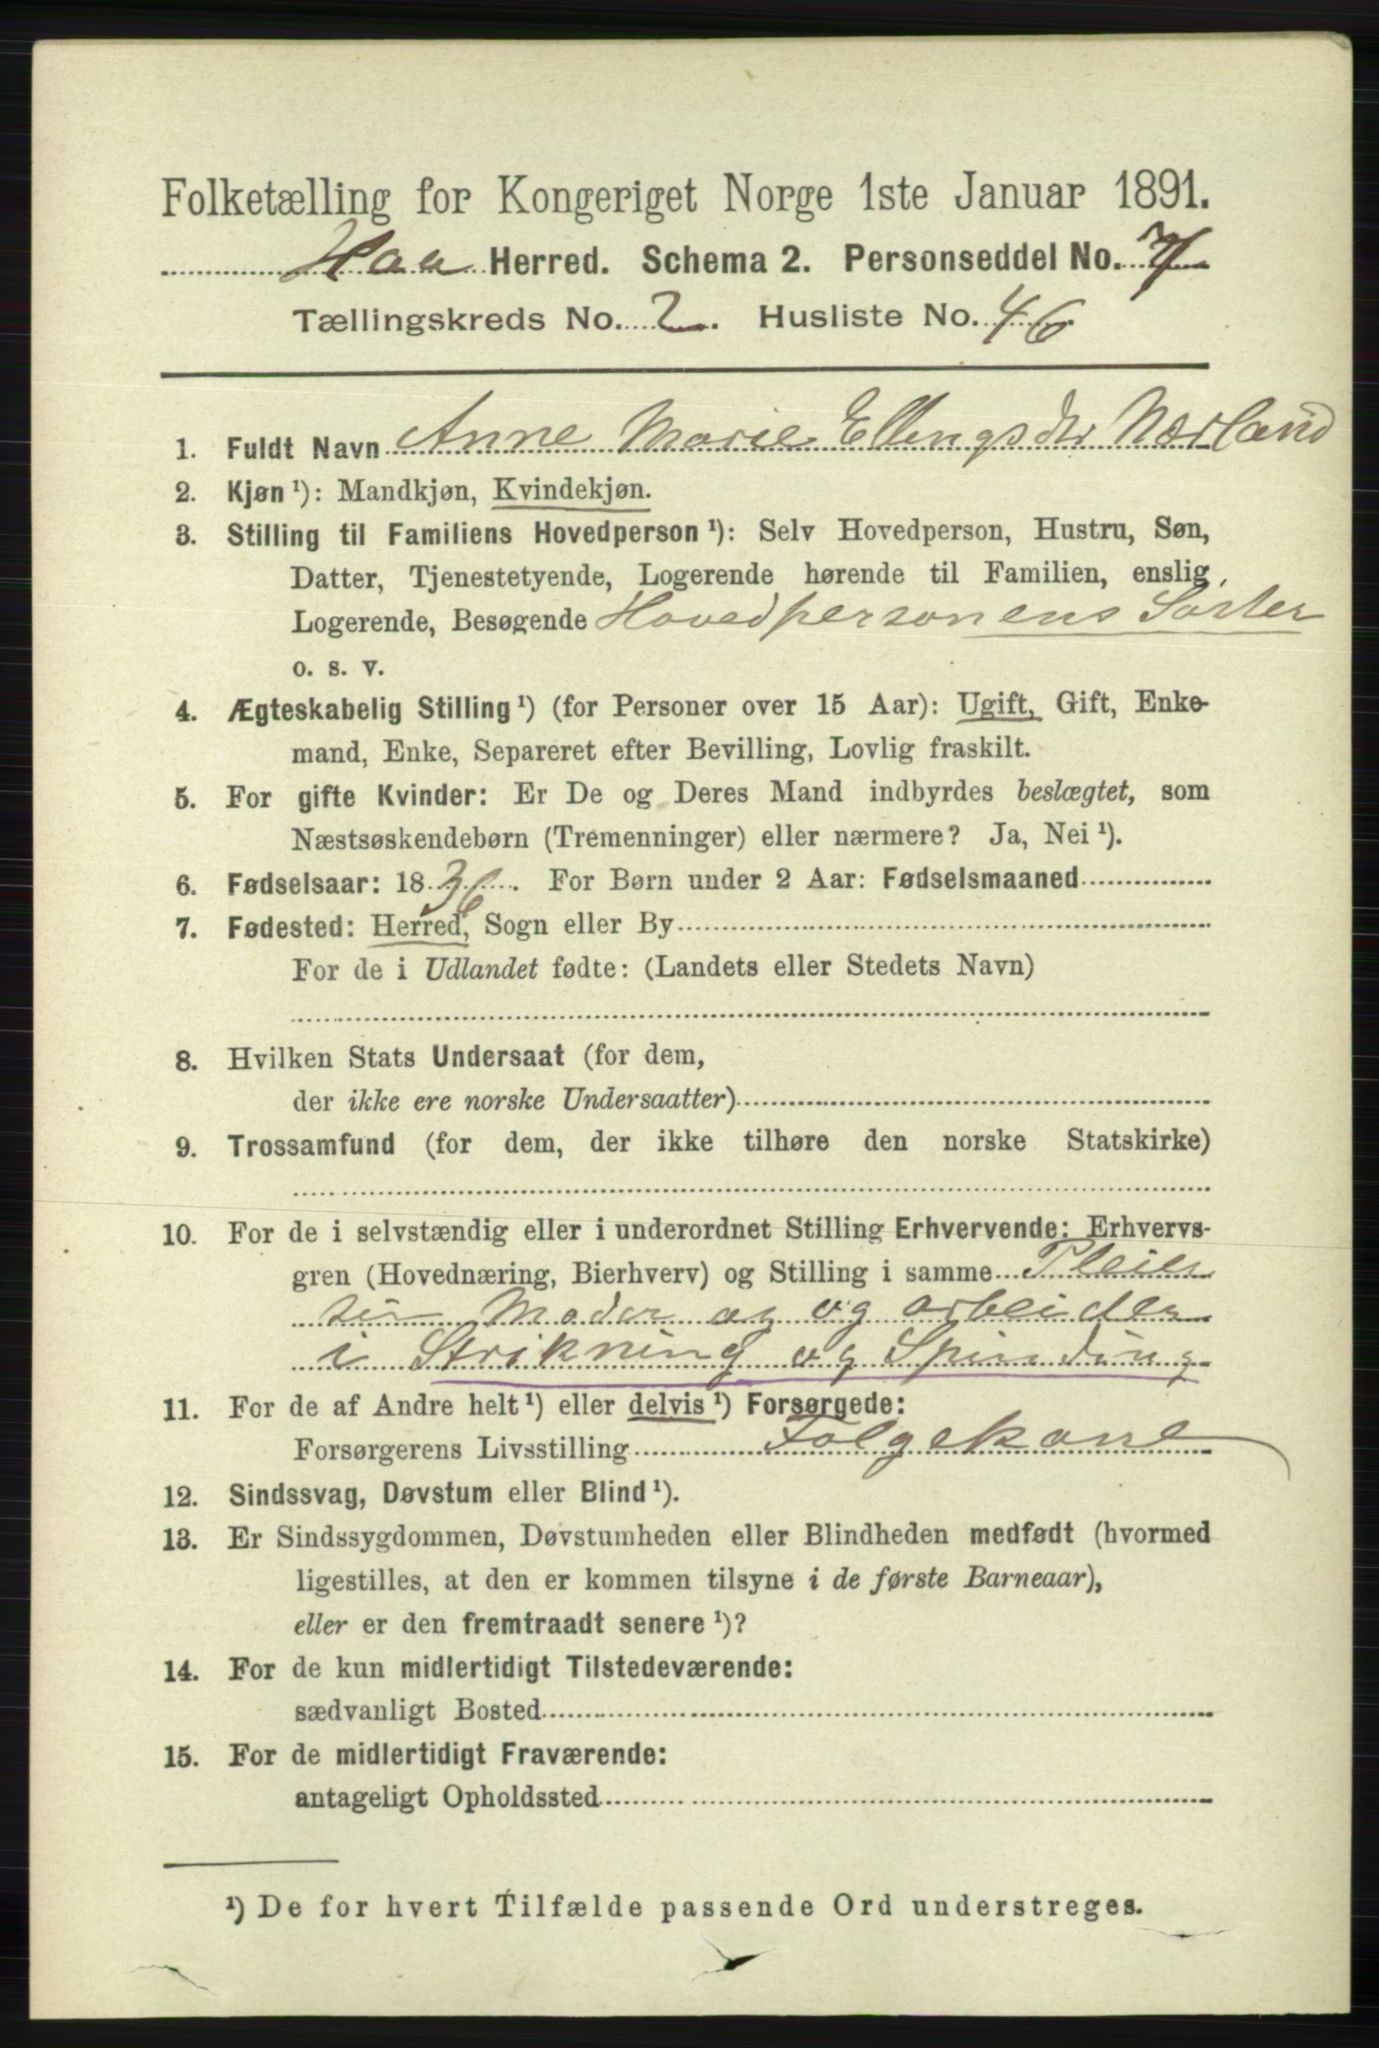 Folketælling for Kongeriget Norge 1ste Januar 1891.
Haa Herred. Schema 2. Personseddel No. 7
Tællingskreds No. 2. Husliste No. 46
1. Fuldt Navn Anne Marie Ellingsdtr Nærland
2. Kjøn ¹): Mandkjøn, Kvindekjøn.
3. Stilling til Familiens Hovedperson ¹): Selv Hovedperson, Hustru, Søn,
Datter, Tjenestetyende, Logerende hørende til Familien, enslig
Logerende, Besøgende Hovedpersonens Søster
o. s. v.
4. Ægteskabelig Stilling ¹) (for Personer over 15 Aar): Ugift, Gift, Enke-
mand, Enke, Separeret efter Bevilling, Lovlig fraskilt.
5. For gifte Kvinder: Er De og Deres Mand indbyrdes beslægtet, som
Næstsøskendebørn (Tremenninger) eller nærmere? Ja, Nei ¹).
6. Fødselsaar: 1836. For Børn under 2 Aar: Fødselsmaaned
7. Fødested: Herred, Sogn eller By
For de i Udlandet fødte: (Landets eller Stedets Navn)
8. Hvilken Stats Undersaat (for dem,
der ikke ere norske Undersaatter)
9. Trossamfund (for dem, der ikke tilhøre den norske Statskirke)
10. For de i selvstændig eller i underordnet Stilling Erhvervende: Erhvervs-
gren (Hovednæring, Bierhverv) og Stilling i samme Pleier
sin Moder og og arbeider
i Strikning og Spinding
11. For de af Andre helt ¹) eller delvis ¹) Forsørgede:
Forsørgerens Livsstilling Folgekone
12. Sindssvag, Døvstum eller Blind ¹).
13. Er Sindssygdommen, Døvstumheden eller Blindheden medfødt (hvormed
ligestilles, at den er kommen tilsyne i de første Barneaar),
eller er den fremtraadt senere ¹)?
14. For de kun midlertidigt Tilstedeværende:
sædvanligt Bosted
15. For de midlertidigt Fraværende:
antageligt Opholdssted
¹) De for hvert Tilfælde passende Ord understreges.